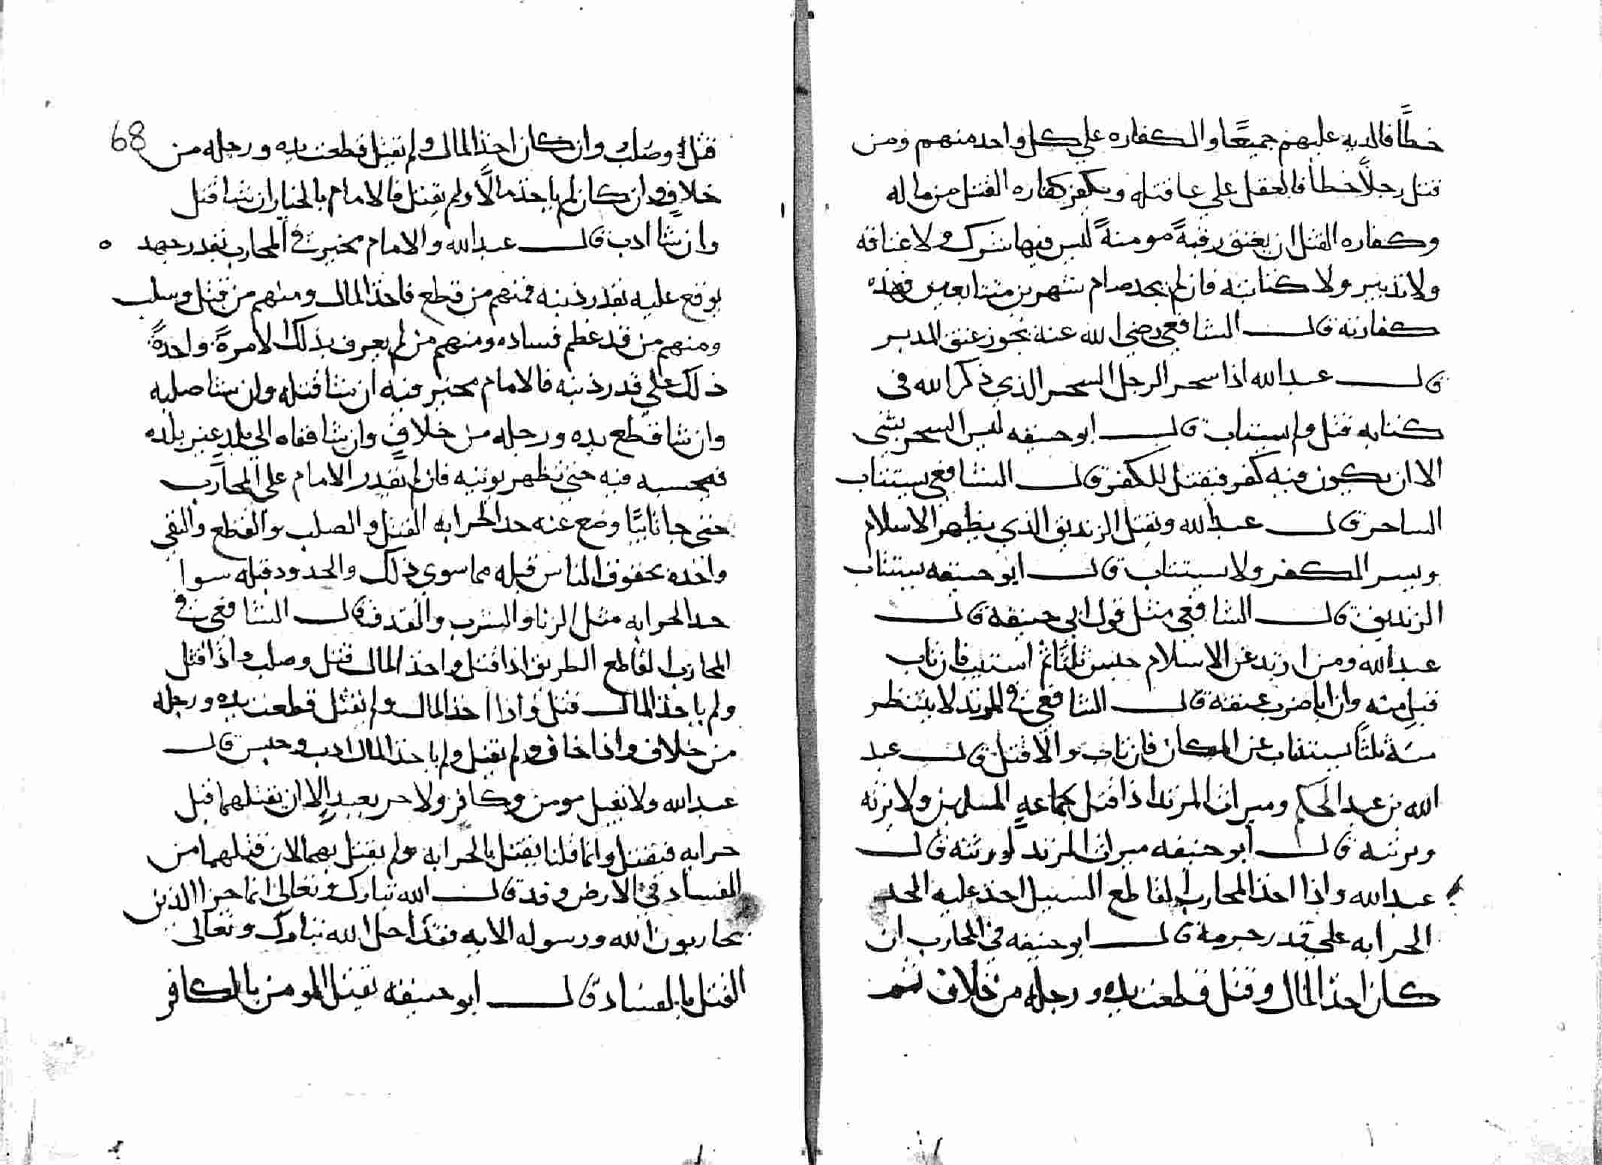 خطأ فالديه عليهم جميعًا والكفاره علي كل واحد منهم ومن
قتل رجلاً خطأ فالعقل علي عاقلته ويكفر كفاره القتل من ماله
وكفاره القتل ان يعتق رقبةً مومنةً ليس فيها شرك ولا عتاقه
ولا تدبير ولا كتابه فان لم يجد صام شهرين متتابعين فهذه
كفارته قال الشافعي رضي الله عنه يجوز عتق المدبر
قال عبدالله اذا سحر الرجل السحر الذي ذكر الله في
كتابه قتل ولم يستتاب قال ابو حنيفه ليس السحر بشي
الا ان يكون فيه كفر فيقتل للكفر قال الشافعي يستتاب
الساحر قال عبدالله ويقتل الزنديق الذي يظهر الاسلام
ويسر الكفر ولا يستتاب قال ابو حنيفه يستتاب
الزنديق قال الشافعي مثل قول ابي حنيفة قال
عبدالله ومن ارتد عن الاسلام حبس ثلثا ثم استتيب فان تاب
قبل منه وان ابا ضرب عنقه قال الشافعي في المرتد لا ينتظر
به ثلثا يستتاب عن المكان فان تاب والا قتل قال عبد
الله بن عبد الحكم وميراث المرتد اذا قتل لجماعه المسلمين ولا يرثه
ورثته قال ابو حنيفه ميراث المرتد لورثته قال
عبدالله واذا اخذ المحارب القاطع السبيل اخذ عليه الحد
الحرابه علي قدر جرمه قال ابو حنيفه في المحارب ان
كان اخذ المال وقتل قطعت يده ورجله من خلاف ثم
68
قتل وصلب وان كان اخذ المال ولم يقتل قطعت يده ورجله من
خلاف وان كان لم ياخذ مالاً ولم يقتل فالامام بالخيار ان شا قتل
وان شا ادب قال عبدالله والامام مخير في المحارب بقدر جهد ه
يوقع عليه بقدر ذنبه فمنهم من قطع فاخذ المال ومنهم من قتل وسلب
ومنهم من قد عظم فساده ومنهم من لم يعرف بذلك الا مرةً واحدةً
ذلك علي قدر ذنبه فالامام مخير فيه ان شا قتله وان شا صلبه
وان شا قطع يده ورجله من خلاف وان شا نفاه الي بلد غير بلده
فيحبسه فيه حتي تظهر توبته فان لم يقدر الامام علي المحارب
حتي جا تايبًا وضع عنه حد الحرابه القتل والصلب والقطع والنفي
واخذه بحقوق الناس قبله مما سوي ذلك والحدود قبله سوا
حد الحرابه مثل الزنا والشرب والقذف قال الشافعي في
المحارب القاطع الطريق اذا قتل واخذ المال قتل وصلب واذا قتل
ولم ياخذ المال قتل واذا اخذ المال ولم يقتل قطعت يده ورجله
من خلاف واذا خاف ولم يقتل ولم ياخذ المال ادب وحبس قال
عبدالله ولا يقتل مومن وكافر ولا حر بعبد الا ان يقتلهما قبل
حرابه فيقتل وانما قلنا يقتل بالحرابه ولم يقتل بهما لان قتلهما من
الفساد في الارض وقد قال الله تبارك وتعالي انما جزا الذين
يحاربون الله ورسوله الايه فقد احل الله تبارك وتعالي
القتل بالفساد قال ابو حنيفه يقتل المومن بالكافر